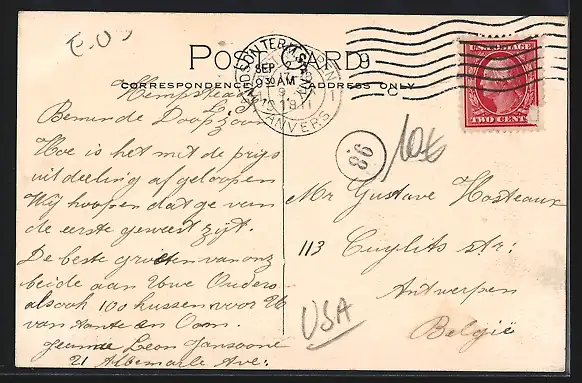 POST CARD
CORRESPONDENCE
ADDRESS ONLY
HUDSON TERM. STA.
SEP 2
930 AM
1911
ANVERS
U.S. POSTAGE
TWO CENTS
86
Hempstead
L. I.
Beminde Doopzoon
Hoe is het met de prijs
uitdeeling afgeloopen
Wij hoopen dat ge van
de eerste geweest zijt.
De beste groeten van onz
beide aan Uwe Ouders
alsook 100 kussen voor U
van tante en Oom.
Leon Janssone
21 Albemarle Ave:
Mr Gustave Hosteaux
113 Cuylits str:
Antwerpen
Belgie
USA